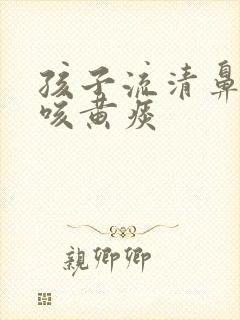 孩子流清鼻
咳黄痰
親卿卿